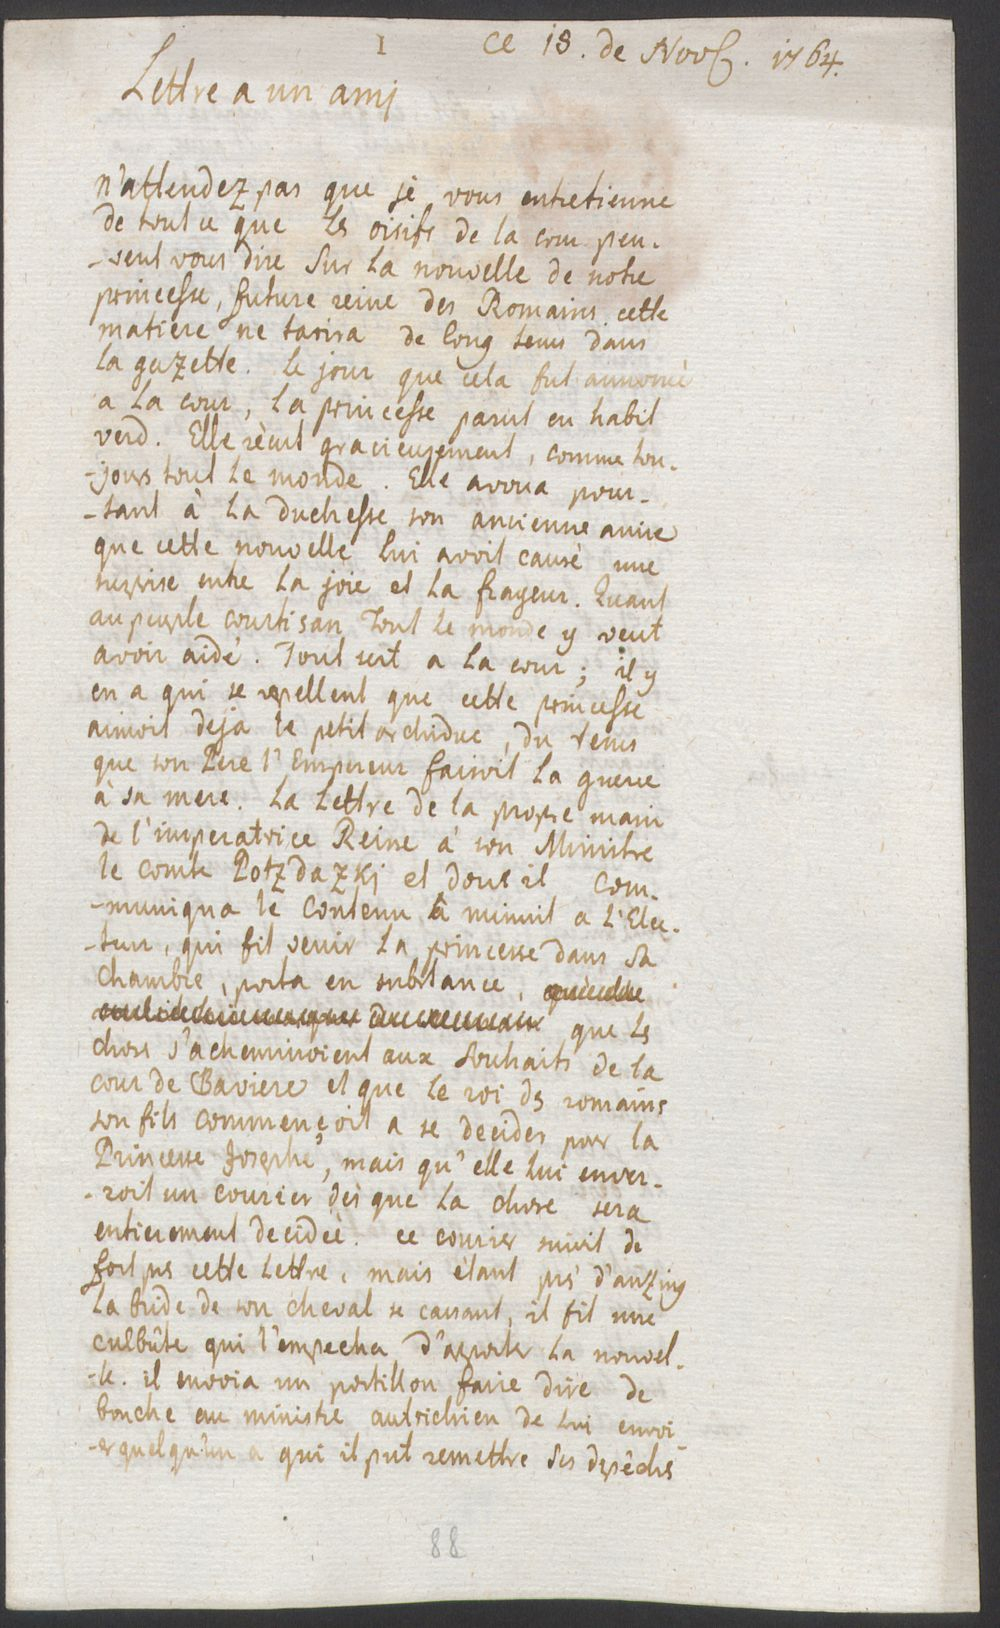 1
ce 18. de Nov. 1764.
Lettre a un ami
n'attendez pas que je vous entretienne
de tout ce que les oisifs de la cour peu-
-vent vous dire sur la nouvelle de notre
princesse, future reine des Romains. cette
matiere ne tarira de long tems dans
la gazette. le jour que cela fut annoncé
a la cour, la princesse parut en habit
verd. Elle réçut gracieusement, comme tou-
-jours tout le monde. Elle avoua pour-
-tant à la Duchesse son ancienne amie
que cette nouvelle lui avoit causé une
surprise entre la joie et la frayeur. Quant
au peuple courtisan Tout le monde y veut
avoir aidé. Tout sert a la cour; il y
en a qui se rapellent que cette princesse
aimoit deja le petit archiduc, du tems
que son Pere l'Empereur faisoit la guerre
à sa mere. La Lettre de la propre main
de l'imperatrice Reine à son Ministre
le comte Potzdazkj et dont il com-
-muniqua le contenu à minuit a l'Elec-
-teur, qui fit venir la princesse dans sa
chambre, porta en substance,
que les
choses s'acheminoient aux souhaits de la
cour de Baviere et que le roi ds romains
son fils commençoit a se decider pour la
Princesse Josephe, mais qu'elle lui enver-
-roit un courier dès que la chose sera
entierement decidée. ce courier suivit de
fort près cette lettre, mais étant près d'anzing
la bride de son cheval se cassant, il fit une
culbûte qui l'empecha d'aporter la nouvel-
-le. il envoia un postillon faire dire de
bouche au ministre autrichien de lui envoi-
-er quelqu'un a qui il put remettre ses depêches
88